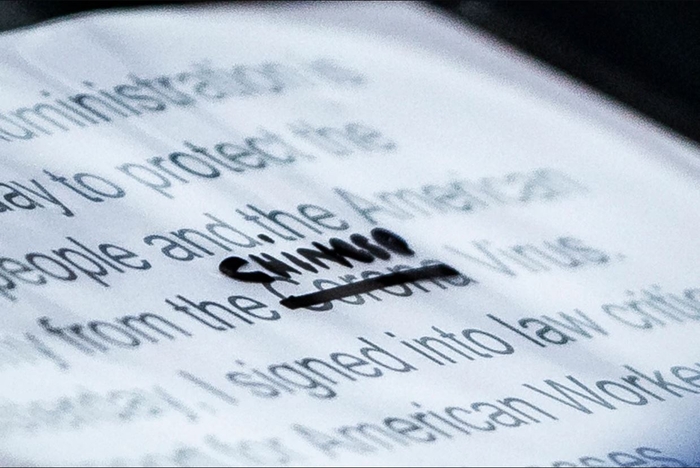 ministration is
ay to protect the
people and the American
CHINESE
y from the Corona Virus.
day, I signed into law criti
for American Worke
ses